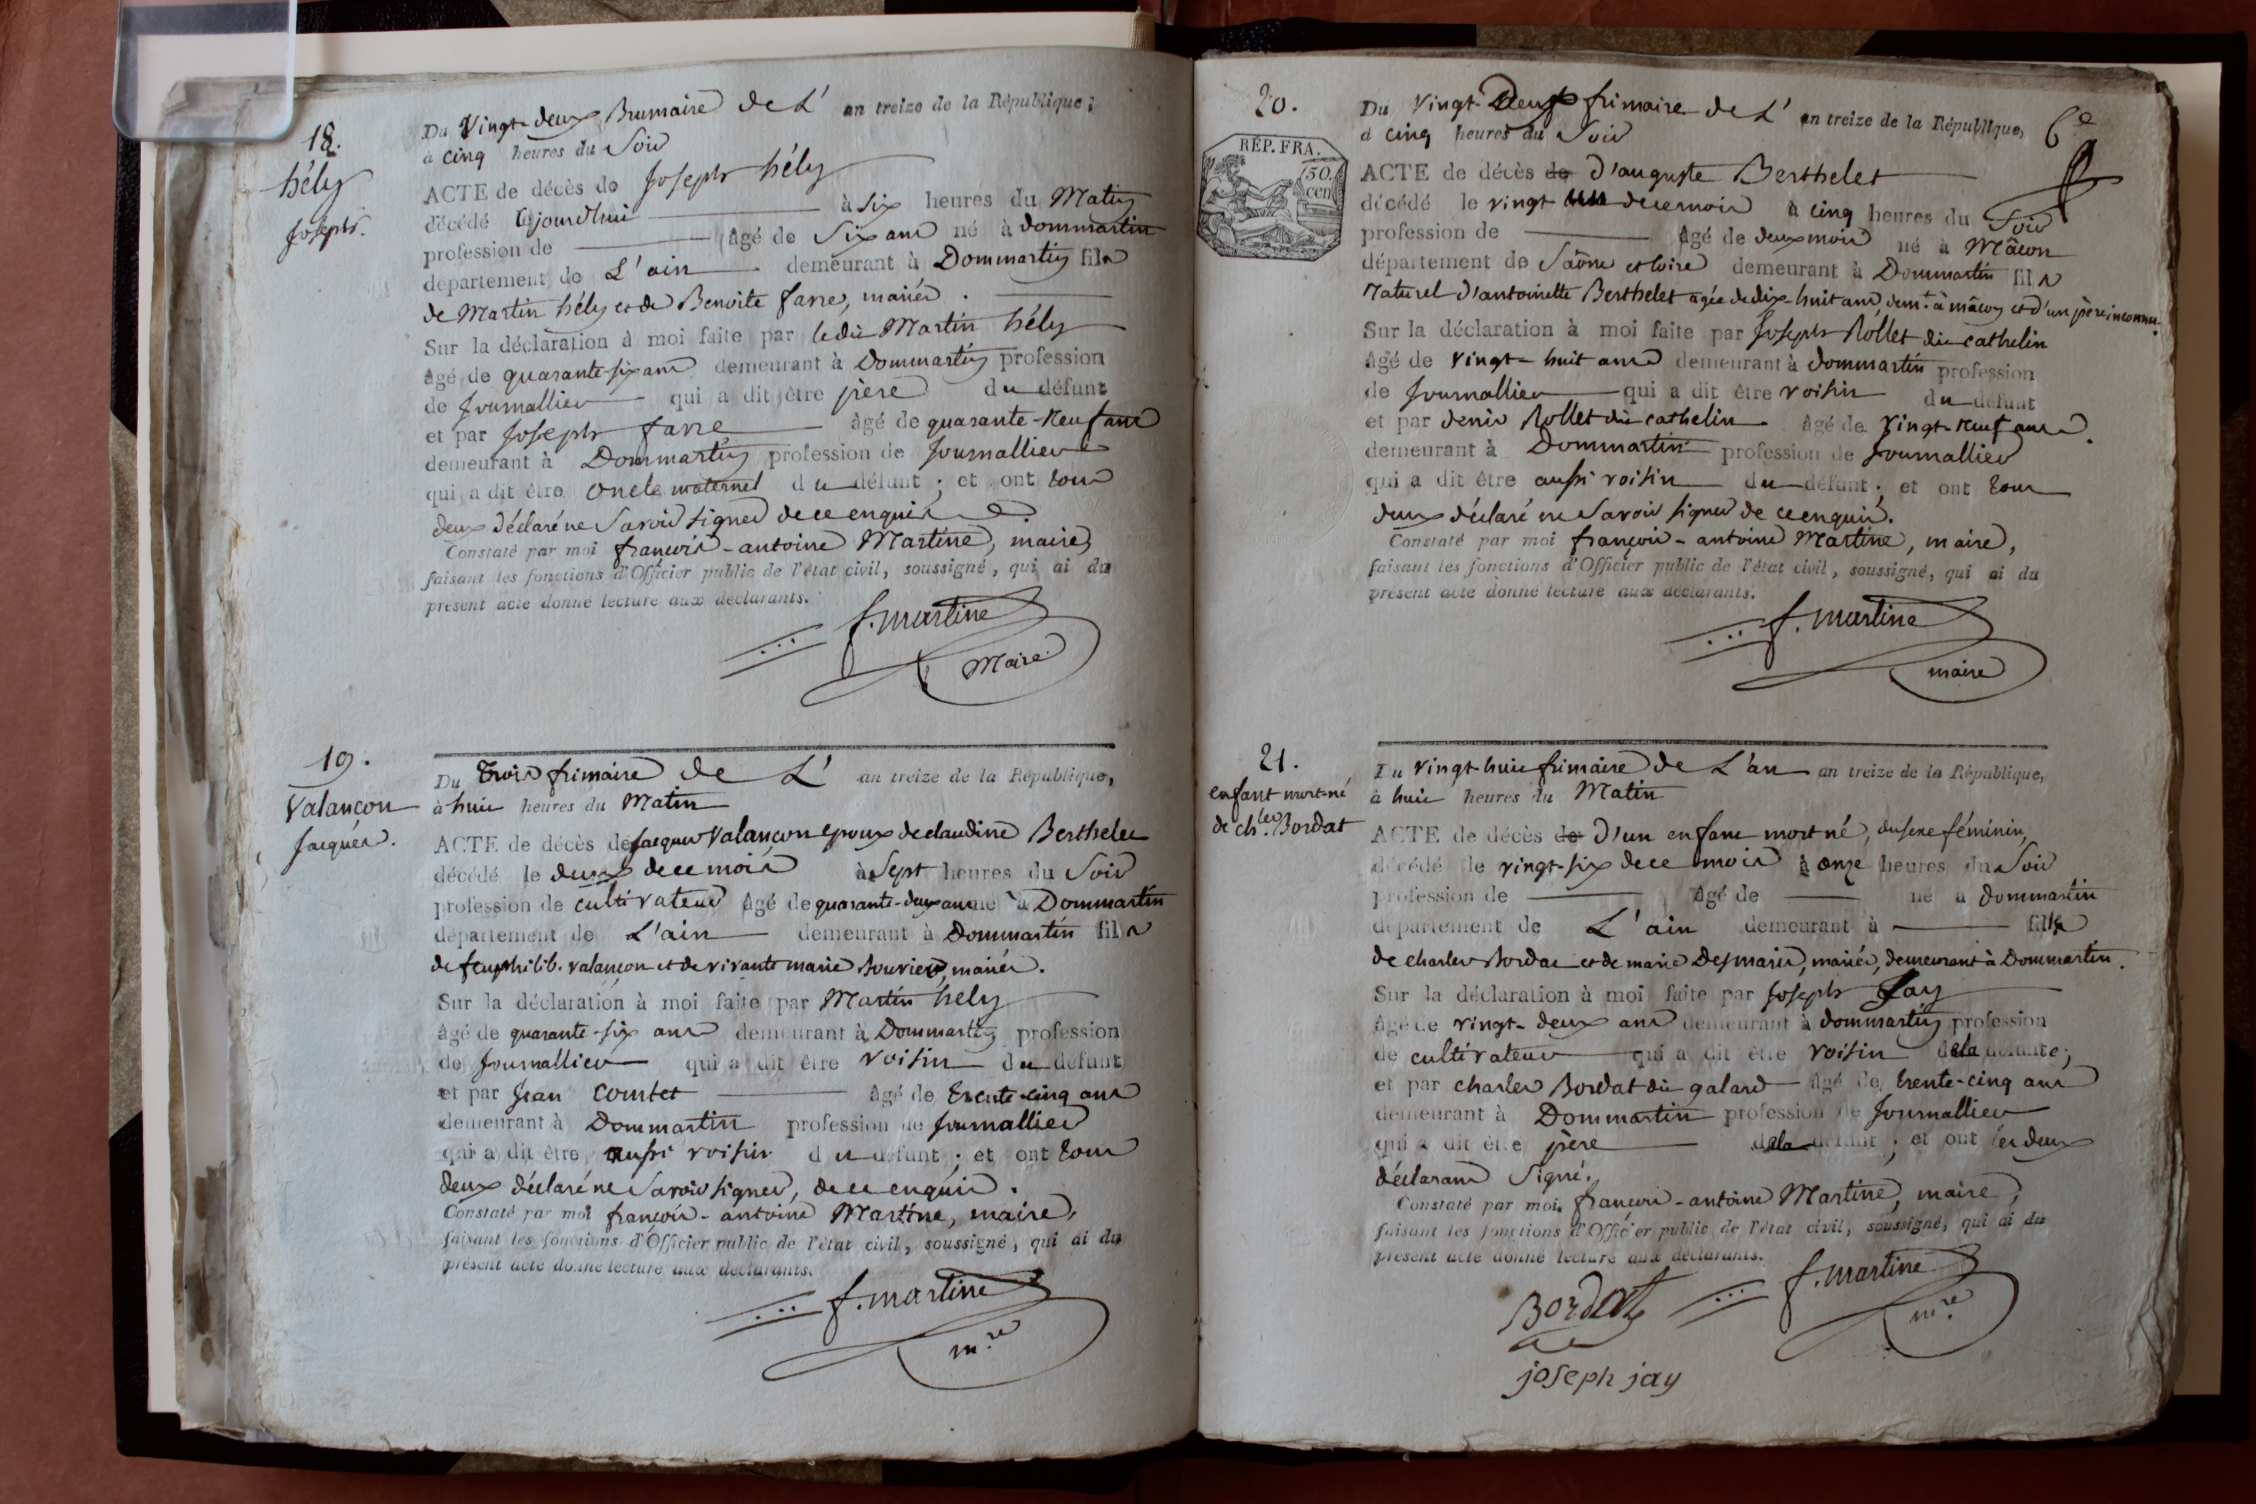 18.
hély
Joseph.
Du Vingt-deux Brumaire de L' an treize de la République;
à cinq heures du Soir
ACTE de décès de Joseph hély
décédé Cejourd'hui à six heures du Matin
profession de âgé de Six ans né à dommartin
département de L'ain demeurant à Dommartin fils
de Martin hély et de Benoite farre, mariés.
Sur la déclaration à moi faite par ledit Martin hély
âgé de quarante-six ans demeurant à Dommartin profession
de Journallier qui a dit être père du défunt
et par Joseph farre âgé de quarante-neuf ans
demeurant à Dommartin profession de Journallier
qui a dit être Oncle maternel du défunt; et ont tous
deux déclaré ne Savoir signer de ce enquis
Constaté par moi françois-antoine Martine, maire,
faisant les fonctions d'Officier public de l'état civil, soussigné, qui ai du
présent acte donné lecture aux déclarants.
f. martine
Maire
19.
Valançon
Jacques.
Du Trois frimaire de L' an treize de la République,
à huit heures du Matin
ACTE de décès de Jacques Valançon epoux de claudine Berthelet
décédé le deux de ce mois à Sept heures du Soir
profession de cultivateur âgé de quarante-deux ans né à Dommartin
département de L'ain demeurant à Dommartin fils
de feu philib. valançon et de vivante marie Bouvier, mariés.
Sur la déclaration à moi faite par Martin hély
âgé de quarante-six ans demeurant à Dommartin profession
de Journallier qui a dit être voisin du défunt
et par Jean Comtet âgé de trente-cinq ans
demeurant à Dommartin profession de Journallier
qui a dit être aussi voisin du défunt; et ont tous
deux déclaré ne Savoir signer, de ce enquis.
Constaté par moi françois-antoine Martine, maire,
faisant les fonctions d'Officier public de l'état civil, soussigné, qui ai du
présent acte donné lecture aux déclarants.
f. martine
m.re
6e
20.
RÉP. FRA.
50.
cen
Du Vingt-Deux frimaire de L' an treize de la République,
à cinq heures du Soir
ACTE de décès de d'auguste Berthelet
décédé le vingt un de ce mois à cinq heures du Soir
profession de âgé de deux mois né à Mâcon
département de Saône et loire demeurant à Dommartin fils
Naturel d'antoinette Berthelet agée de dix-huit ans dem.t à mâcon et d'un père inconnu.
Sur la déclaration à moi faite par Joseph Rollet dit cathelin
âgé de vingt-huit ans demeurant à dommartin profession
de Journallier qui a dit être voisin du défunt
et par denis Rollet dit cathelin âgé de vingt-neuf ans.
demeurant à Dommartin profession de Journallier
qui a dit être aussi voisin du défunt; et ont tous
deux déclaré ne Savoir signer de ce enquis.
Constaté par moi françois-antoine Martine, maire,
faisant les fonctions d'Officier public de l'état civil, soussigné, qui ai du
présent acte donné lecture aux déclarants.
f. martine
maire
21.
enfant mort-né
de ch.les Bordat
Du vingt-huit frimaire de L'an an treize de la République,
à huit heures du Matin
ACTE de décès de d'un enfant mort né, du sexe féminin,
décédé le vingt-six de ce mois à onze heures du Soir
profession de âgé de né à dommartin
département de L'ain demeurant à fille
de charles Bordat et de marie Desmaris, mariés, demeurant à Dommartin.
Sur la déclaration à moi faite par Joseph Jay
âgé de vingt-deux ans demeurant à dommartin profession
de cultivateur qui a dit être voisin de la défunte;
et par charles Bordat dit galard âgé de trente-cinq ans
demeurant à Dommartin profession de Journallier
qui a dit être père de la défunt; et ont les deux
déclarans Signé.
Constaté par moi françois-antoine Martine, maire,
faisant les fonctions d'Officier public de l'état civil, soussigné, qui ai du
présent acte donné lecture aux déclarants.
Bordat
f. martine
m.re
joseph jay